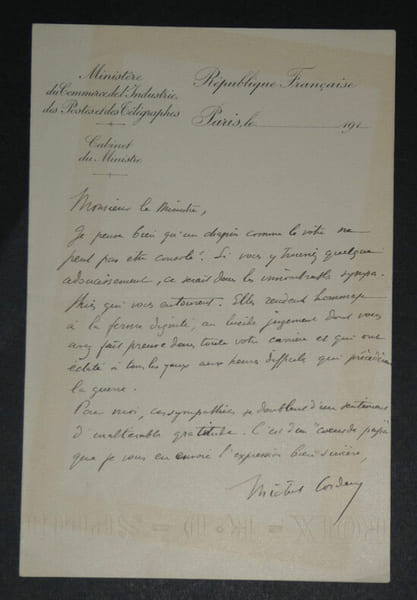 Ministère
du Commerce, de l'Industrie,
des Postes et des Télégraphes
Cabinet
du Ministre
République Française
Paris, le 191
Monsieur le Ministre,
Je pense bien qu'un chagrin comme le votre ne
peut pas être consolé. Si vous y trouviez quelque
adoucissement, ce serait dans les innombrables sympa-
thies qui vous entourent. Elles rendent hommage
à la ferme dignité, au lucide jugement dont vous
avez fait preuve dans toute votre carrière et qui ont
éclaté à tous les yeux aux heures difficiles qui précédèrent
la guerre.
Pour moi, ces sympathies se doublent d'un sentiment
d'inaltérable gratitude. C'est d'un "coeur de papa"
que je vous en envoie l'expression bien sincère,
Michel Corday